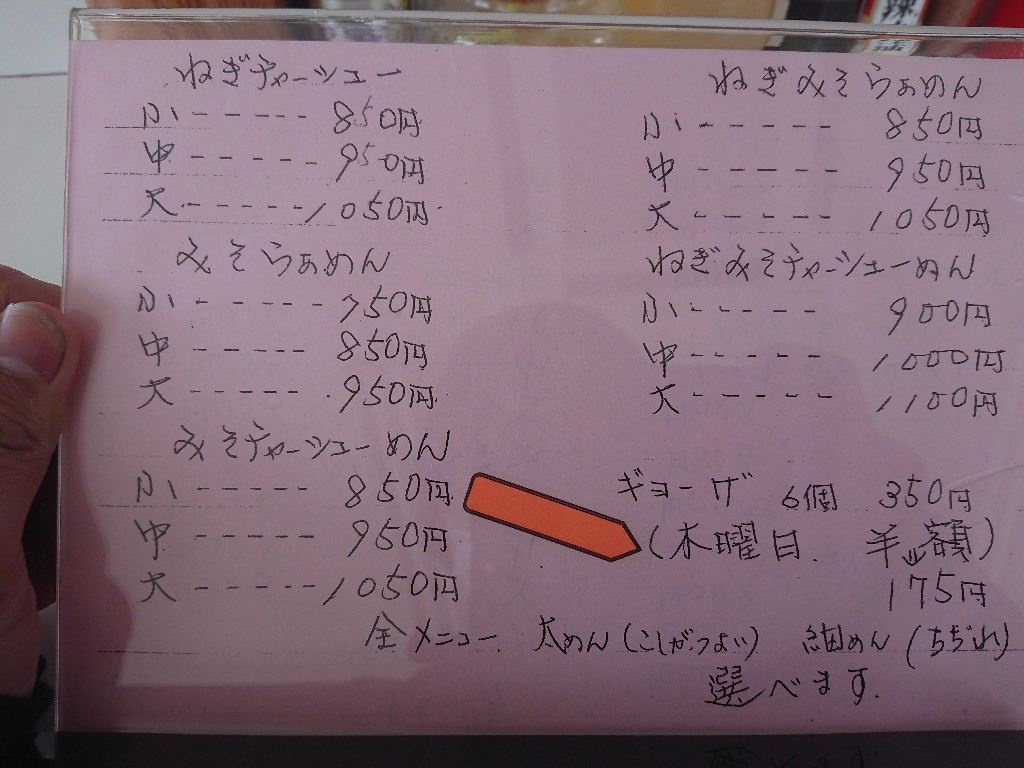 ねぎチャーシュー
小 ----- 850円
中 ----- 950円
大 ----- 1050円
みそらぁめん
小 ----- 750円
中 ----- 850円
大 ----- 950円
みそチャーシューめん
小 ----- 850円
中 ----- 950円
大 ----- 1050円
ねぎみそらぁめん
小 ----- 850円
中 ----- 950円
大 ----- 1050円
ねぎみそチャーシューめん
小 ----- 900円
中 ----- 1000円
大 ----- 1100円
ギョーザ 6個 350円
(木曜日 半額)
175円
全メニュー 太めん(こしがつよい) 細めん(ちぢれ)
選べます.